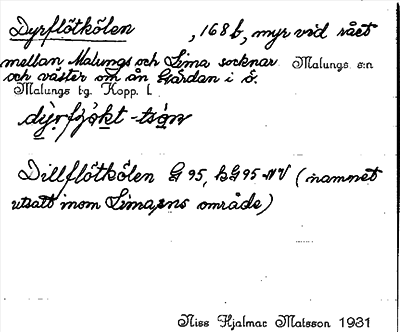 Dyrflötkölen , 168 b, myr vid rået
mellan Malungs och Lima socknar Malungs s:n
och väster om ån Gårdan i S.
Malungs tg. Kopp. l.
Dillflötkölen G 95, BG 95 NV (namnet
utsatt inom Lima sns område)
Niss Hjalmar Matsson 1931